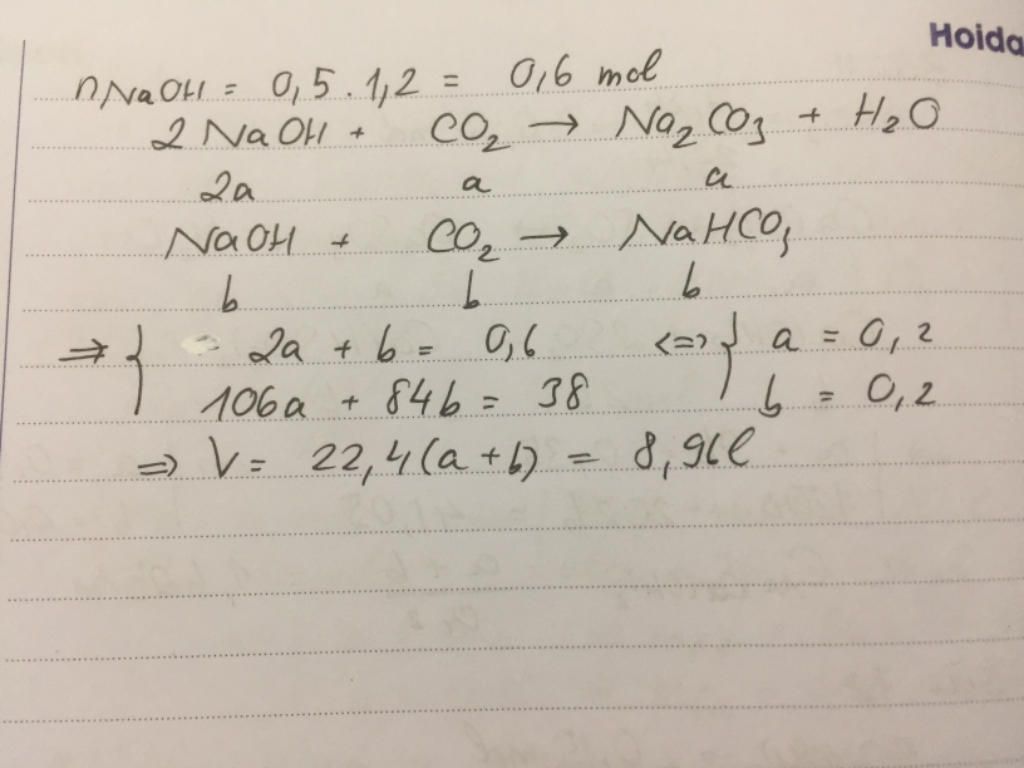 Hoida
nNaOH = 0,5 . 1,2 = 0,6 mol
2 NaOH + CO2 → Na2CO3 + H2O
2a a a
NaOH + CO2 → NaHCO3
b b b
⇒ { 2a + b = 0,6 <=> } a = 0,2
106a + 84b = 38 b = 0,2
=> V = 22,4(a + b) = 8,96l